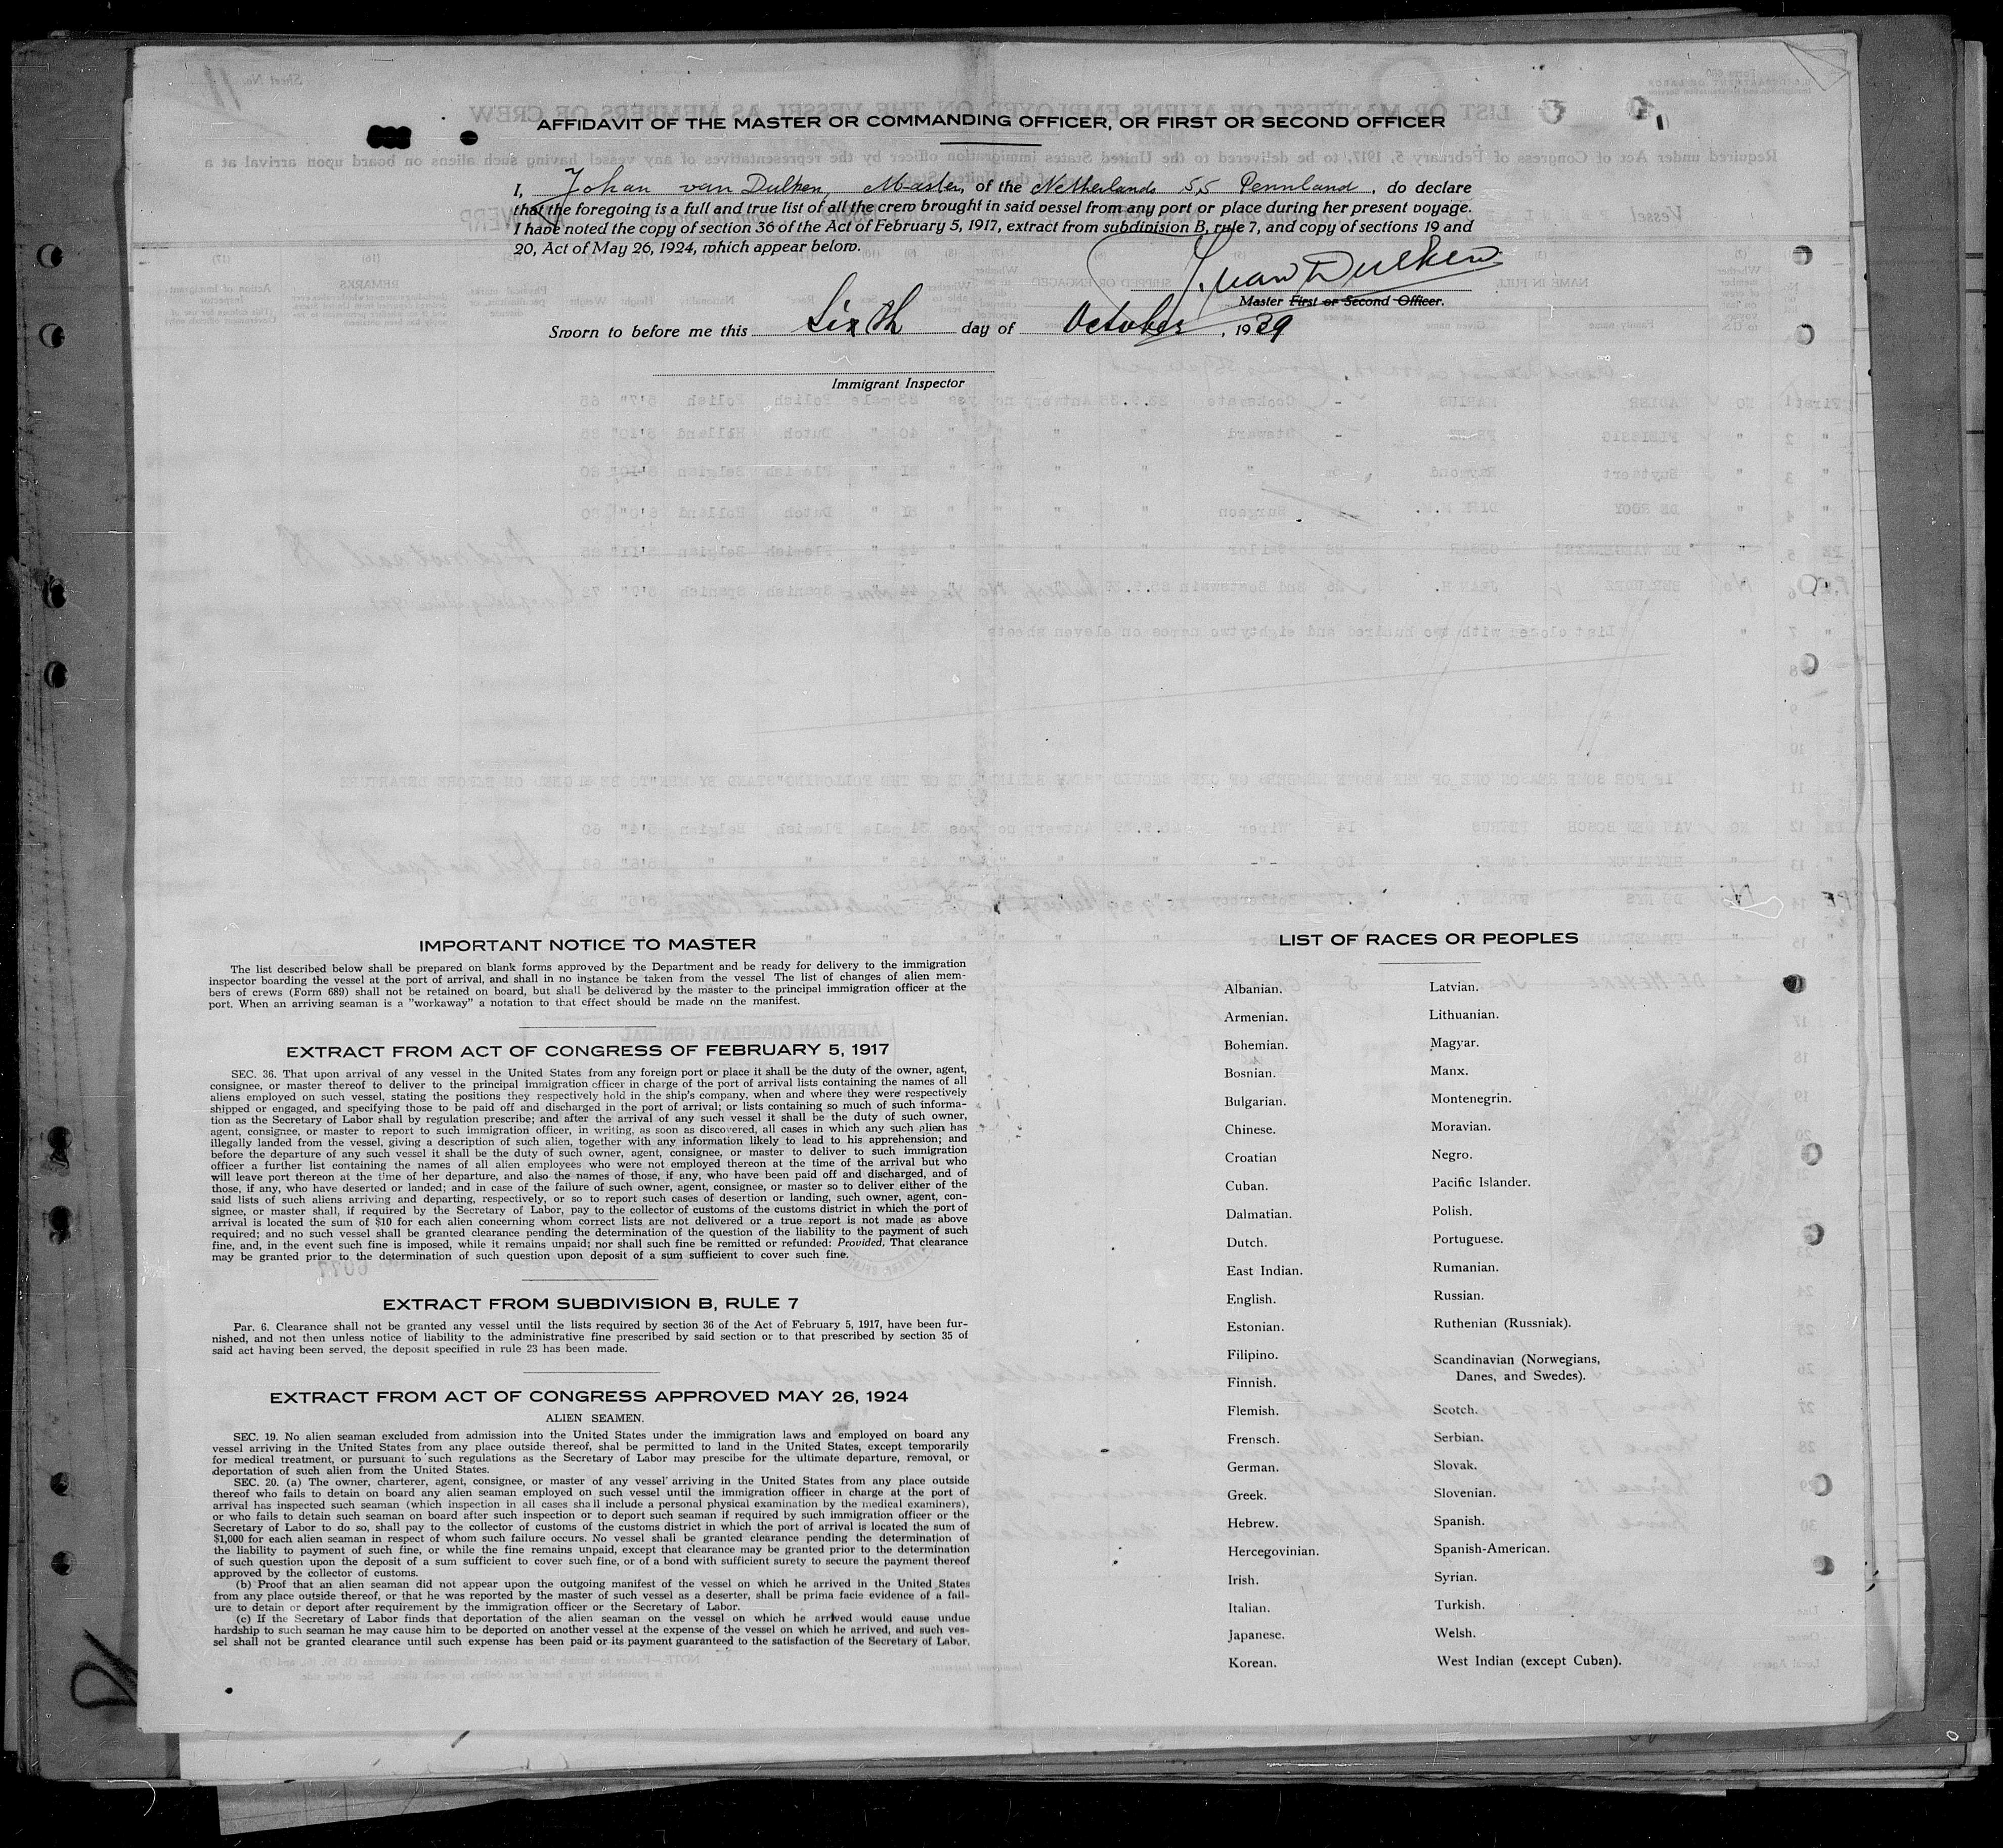 AFFIDAVIT OF THE MASTER OR COMMANDING OFFICER, OR FIRST OR SECOND OFFICER
I, Johan van Dulken, Master, of the Netherlands SS Pennland, do declare
that the foregoing is a full and true list of all the crew brought in said vessel from any port or place during her present voyage.
I have noted the copy of section 36 of the Act of February 5, 1917, extract from subdivision B, rule 7, and copy of sections 19 and
20, Act of May 26, 1924, which appear below.
J. van Dulken
Master First or Second Officer.
Sworn to before me this Sixth day of October, 1939
Immigrant Inspector
IMPORTANT NOTICE TO MASTER
The list described below shall be prepared on blank forms approved by the Department and be ready for delivery to the immigration
inspector boarding the vessel at the port of arrival, and shall in no instance be taken from the vessel The list of changes of alien mem-
bers of crews (Form 689) shall not be retained on board, but shall be delivered by the master to the principal immigration officer at the
port. When an arriving seaman is a "workaway" a notation to that effect should be made on the manifest.
EXTRACT FROM ACT OF CONGRESS OF FEBRUARY 5, 1917
SEC. 36. That upon arrival of any vessel in the United States from any foreign port or place it shall be the duty of the owner, agent,
consignee, or master thereof to deliver to the principal immigration officer in charge of the port of arrival lists containing the names of all
aliens employed on such vessel, stating the positions they respectively hold in the ship's company, when and where they were respectively
shipped or engaged, and specifying those to be paid off and discharged in the port of arrival; or lists containing so much of such informa-
tion as the Secretary of Labor shall by regulation prescribe; and after the arrival of any such vessel it shall be the duty of such owner,
agent, consignee, or master to report to such immigration officer, in writing, as soon as discovered, all cases in which any such alien has
illegally landed from the vessel, giving a description of such alien, together with any information likely to lead to his apprehension; and
before the departure of any such vessel it shall be the duty of such owner, agent, consignee, or master to deliver to such immigration
officer a further list containing the names of all alien employees who were not employed thereon at the time of the arrival but who
will leave port thereon at the time of her departure, and also the names of those, if any, who have been paid off and discharged, and of
those, if any, who have deserted or landed; and in case of the failure of such owner, agent, consignee, or master so to deliver either of the
said lists of such aliens arriving and departing, respectively, or so to report such cases of desertion or landing, such owner, agent, con-
signee, or master shall, if required by the Secretary of Labor, pay to the collector of customs of the customs district in which the port of
arrival is located the sum of $10 for each alien concerning whom correct lists are not delivered or a true report is not made as above
required; and no such vessel shall be granted clearance pending the determination of the question of the liability to the payment of such
fine, and, in the event such fine is imposed, while it remains unpaid; nor shall such fine be remitted or refunded: Provided, That clearance
may be granted prior to the determination of such question upon deposit of a sum sufficient to cover such fine.
EXTRACT FROM SUBDIVISION B, RULE 7
Par. 6. Clearance shall not be granted any vessel until the lists required by section 36 of the Act of February 5, 1917, have been fur-
nished, and not then unless notice of liability to the administrative fine prescribed by said section or to that prescribed by section 35 of
said act having been served, the deposit specified in rule 23 has been made.
EXTRACT FROM ACT OF CONGRESS APPROVED MAY 26, 1924
ALIEN SEAMEN.
SEC. 19. No alien seaman excluded from admission into the United States under the immigration laws and employed on board any
vessel arriving in the United States from any place outside thereof, shal be permitted to land in the United States, except temporarily
for medical treatment, or pursuant to such regulations as the Secretary of Labor may prescibe for the ultimate departure, removal, or
deportation of such alien from the United States.
SEC. 20. (a) The owner, charterer, agent, consignee, or master of any vessel arriving in the United States from any place outside
thereof who fails to detain on board any alien seaman employed on such vessel until the immigration officer in charge at the port of
arrival has inspected such seaman (which inspection in all cases shall include a personal physical examination by the medical examiners),
or who fails to detain such seaman on board after such inspection or to deport such seaman if required by such immigration officer or the
Secretary of Labor to do so, shall pay to the collector of customs of the customs district in which the port of arrival is located the sum of
$1,000 for each alien seaman in respect of whom such failure occurs. No vessel shall be granted clearance pending the determination of
the liability to payment of such fine, or while the fine remains unpaid, except that clearance may be granted prior to the determination
of such question upon the deposit of a sum sufficient to cover such fine, or of a bond with sufficient surety to secure the payment thereof
approved by the collector of customs.
(b) Proof that an alien seaman did not appear upon the outgoing manifest of the vessel on which he arrived in the United States
from any place outside thereof, or that he was reported by the master of such vessel as a deserter, shall be prima facie evidence of a fail-
ure to detain or deport after requirement by the immigration officer or the Secretary of Labor.
(c) If the Secretary of Labor finds that deportation of the alien seaman on the vessel on which he arrived would cause undue
hardship to such seaman he may cause him to be deported on another vessel at the expense of the vessel on which he arrived, and such ves-
sel shall not be granted clearance until such expense has been paid or its payment guaranteed to the satisfaction of the Secretary of Labor.
LIST OF RACES OR PEOPLES
Albanian.
Armenian.
Bohemian.
Bosnian.
Bulgarian.
Chinese.
Croatian
Cuban.
Dalmatian.
Dutch.
East Indian.
English.
Estonian.
Filipino.
Finnish.
Flemish.
Frensch.
German.
Greek.
Hebrew.
Hercegovinian.
Irish.
Italian.
Japanese.
Korean.
Latvian.
Lithuanian.
Magyar.
Manx.
Montenegrin.
Moravian.
Negro.
Pacific Islander.
Polish.
Portuguese.
Rumanian.
Russian.
Ruthenian (Russniak).
Scandinavian (Norwegians,
Danes, and Swedes).
Scotch.
Serbian.
Slovak.
Slovenian.
Spanish.
Spanish-American.
Syrian.
Turkish.
Welsh.
West Indian (except Cuban).